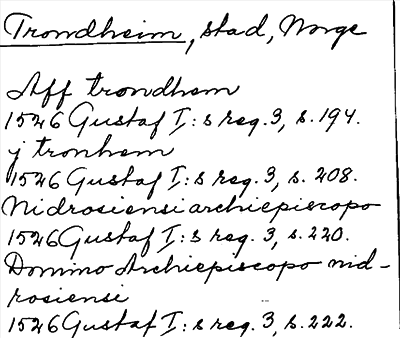 Trondheim, stad, Norge
Aff trondhem
1526 Gustaf I:s reg. 3, s. 194.
j tronhem
1526 Gustaf I:s reg. 3, s. 208.
Nidrosiensi archiepiscopo
1526 Gustaf I:s reg. 3, s. 220.
Domino Archiepiscopo nid-
rosiensi
1526 Gustaf I:s reg. 3, s. 222.